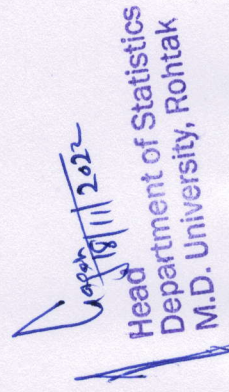 18/11/2022
Head
Department of Statistics
M.D. University, Rohtak